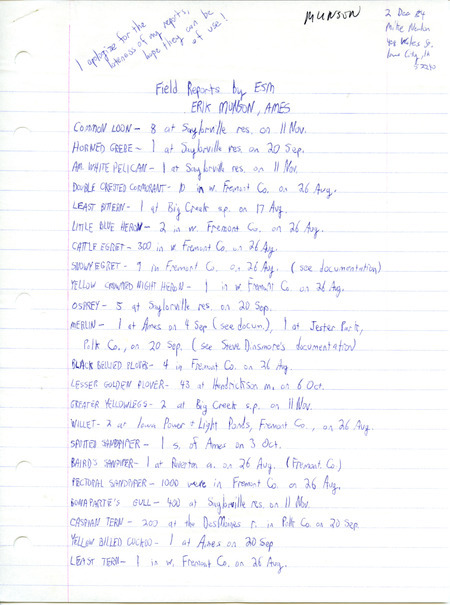 I apologize for the
lateness of my reports,
hope they can be
of use!
MUNSON
2 Dec 84
Iowa City, IA
52240
Field Reports by ESM
ERIK MUNSON, AMES
COMMON LOON - 8 at Saylorville res. on 11 Nov.
HORNED GREBE - 1 at Saylorville res. on 20 Sep.
AM. WHITE PELICAN - 1 at Saylorville res. on 11 Nov.
DOUBLE CRESTED CORMORANT - 10 in w. Fremont Co. on 26 Aug.
LEAST BITTERN - 1 at Big Creek s.p. on 17 Aug.
LITTLE BLUE HERON - 2 in w. Fremont Co. on 26 Aug.
CATTLE EGRET - 300 in w. Fremont Co. on 26 Aug.
SNOWY EGRET - 9 in Fremont Co. on 26 Aug. (see documentation)
YELLOW CROWNED NIGHT HERON - 1 in w. Fremont Co. on 26 Aug.
OSPREY - 5 at Saylorville res. on 20 Sep.
MERLIN - 1 at Ames on 4 Sep (see docum.), 1 at Jester Park,
Polk Co., on 20 Sep. (see Steve Dinsmore's documentation)
BLACK BELLIED PLOVER - 4 in Fremont Co. on 26 Aug.
LESSER GOLDEN PLOVER - 43 at Hendrickson m. on 6 Oct.
GREATER YELLOWLEGS - 2 at Big Creek s.p. on 11 Nov.
WILLET - 2 at Iowa Power + Light Ponds, Fremont Co., on 26 Aug.
SPOTTED SANDPIPER - 1 s. of Ames on 3 Oct.
BAIRD'S SANDPIPER - 1 at Riverton a. on 26 Aug. (Fremont Co.)
PECTORAL SANDPIPER - 1000 were in Fremont Co. on 26 Aug.
BONAPARTE'S GULL - 400 at Saylorville res. on 11 Nov.
CASPIAN TERN - 207 at the DesMoines r. in Polk Co. on 20 Sep.
YELLOW BILLED CUCKOO - 1 at Ames on 20 Sep
LEAST TERN - 1 in w. Fremont Co. on 26 Aug.